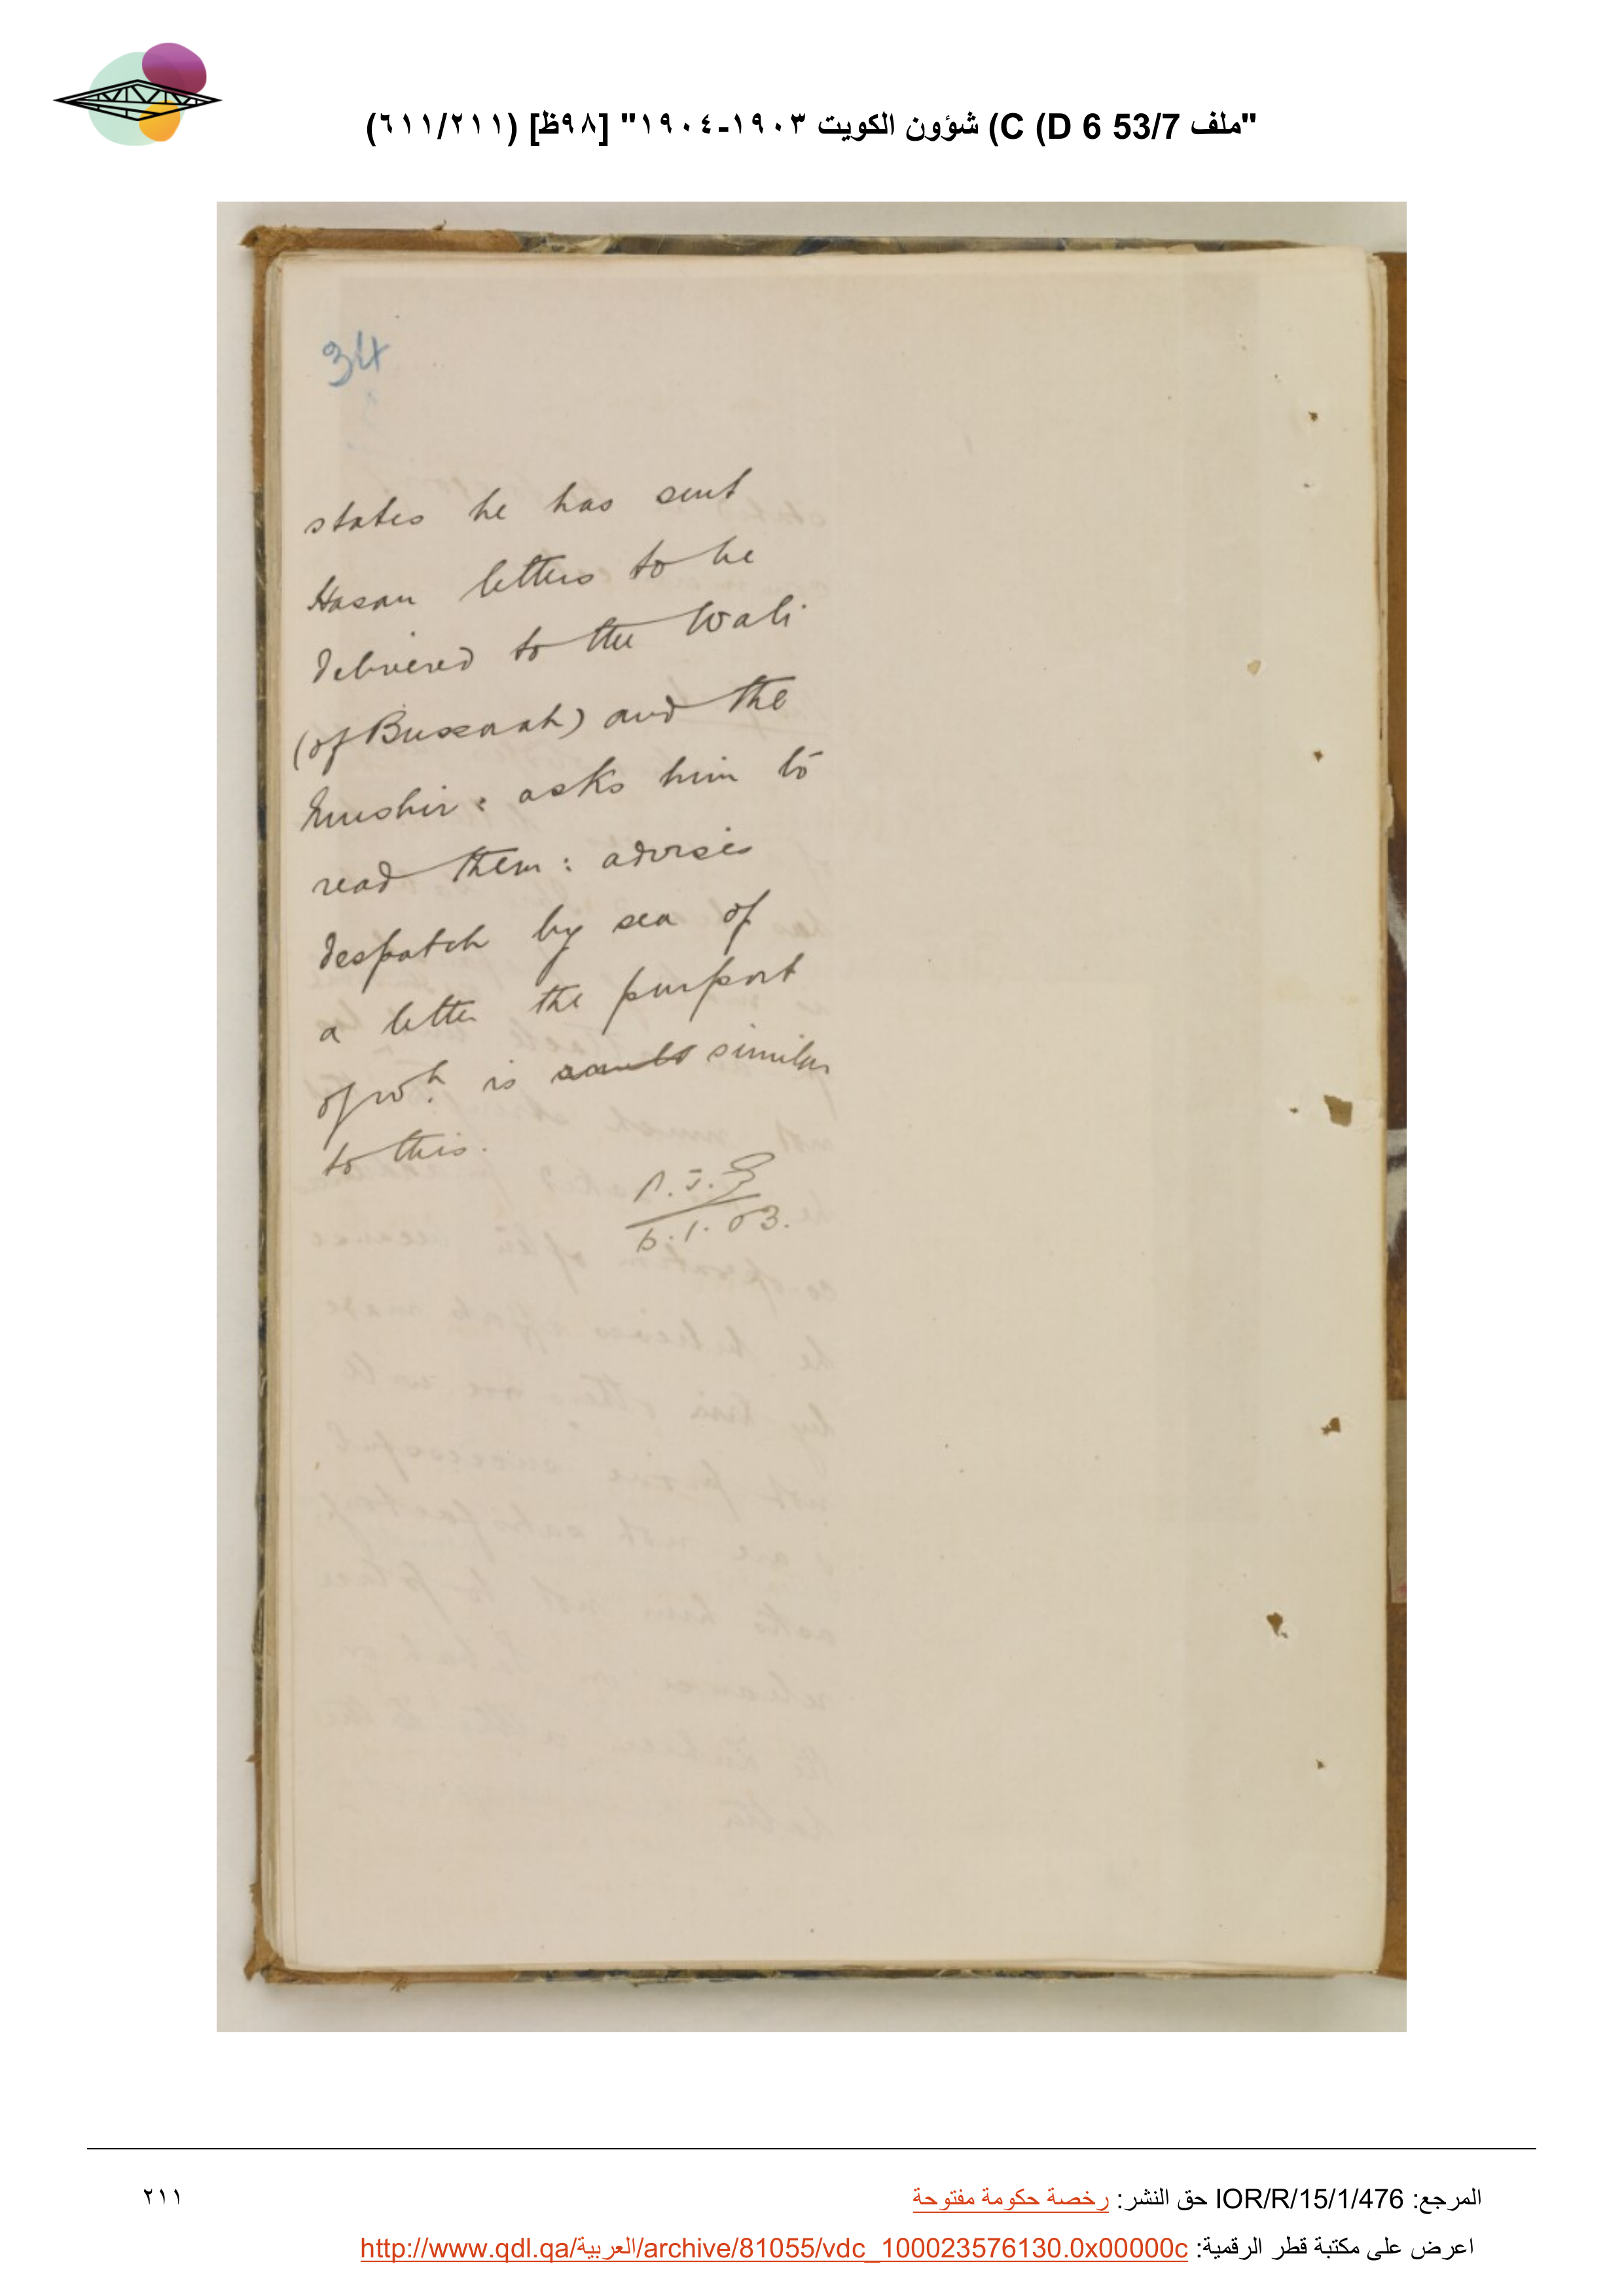 "ملف 53/7 C (D 6) شؤون الكويت ١٩٠٣-١٩٠٤" [٩٨ظ] (٦١١/٢١١)
34
states he has sent
Hasan letters to be
delivered to the Wali
(of Bussorah) and the
Mushir: asks him to
read them: advises
despatch by sea of
a letter the purport
of wh. is similar
to this.
6.1.03.
المرجع: IOR/R/15/1/476 حق النشر: رخصة حكومة مفتوحة
٢١١
اعرض على مكتبة قطر الرقمية: http://www.qdl.qa/العربية/archive/81055/vdc_100023576130.0x00000c